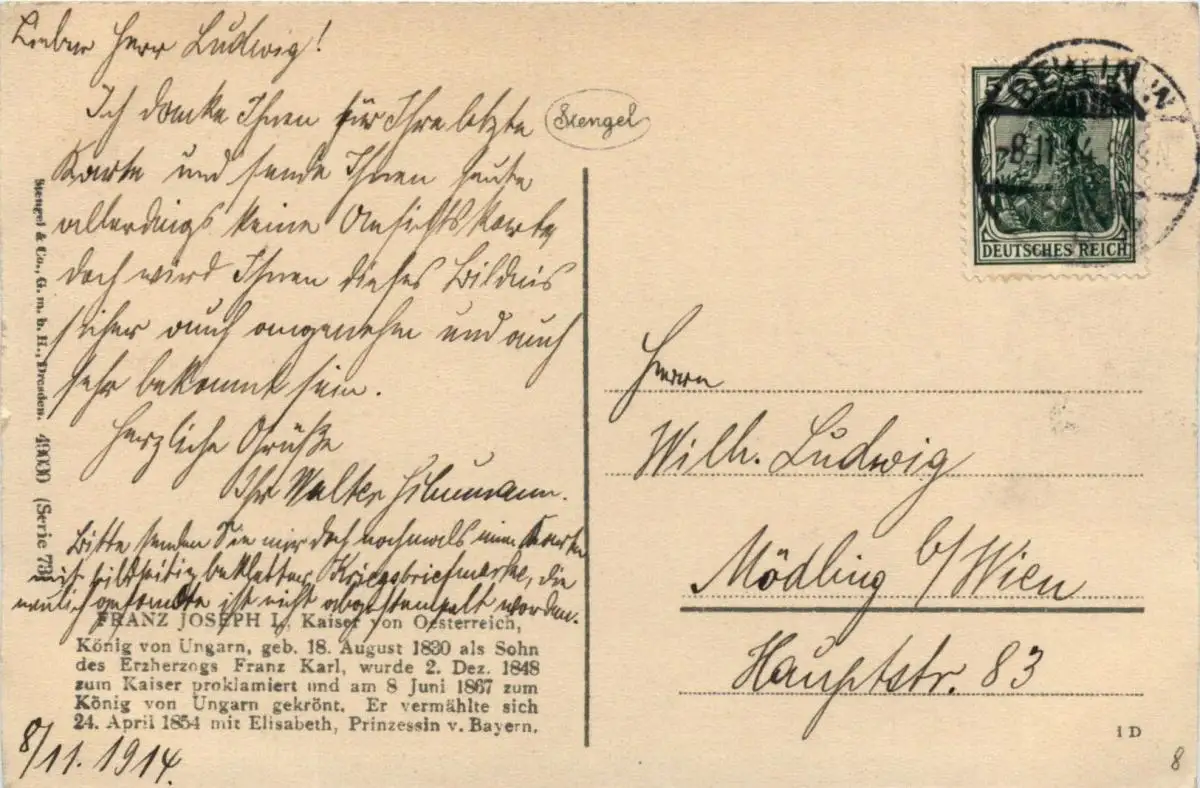 Lieber Herr Ludwig!
Ich danke Ihnen für Ihre letzte
Karte und sende Ihnen heute
allerdings keine Ansichtskarte,
doch wird Ihnen dieses Bildnis
sicher auch angenehm und auch
sehr bekannt sein.
Herzliche Grüße
Ihr Walter
Bitte senden Sie mir doch nochmals eine Karte
mit bildseitig beklebter Kriegsbriefmarke, die
neulich gesandte ist nicht abgestempelt worden.
FRANZ JOSEPH I., Kaiser von Oesterreich,
König von Ungarn, geb. 18. August 1830 als Sohn
des Erzherzogs Franz Karl, wurde 2. Dez. 1848
zum Kaiser proklamiert und am 8 Juni 1867 zum
König von Ungarn gekrönt. Er vermählte sich
24. April 1854 mit Elisabeth, Prinzessin v. Bayern.
8/11. 1914.
Stengel & Co., G. m. b. H., Dresden. 49030 (Serie 73)
Stengel
BERLIN W
-8.11.14. 8-9N
DEUTSCHES REICH
Herrn
Wilh. Ludwig
Mödling b/Wien
Hauptstr. 83
1 D
8